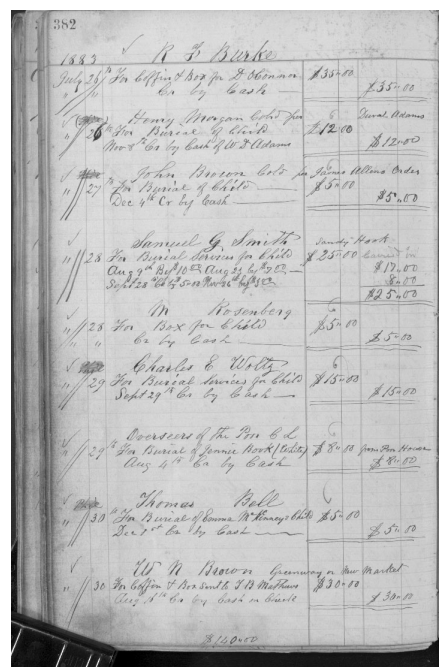 382
1883 R F Burke
July 26th For Coffin & Box for D OConnor $35.00
" " Cr by Cash $35.00
Henry Morgan Cold for Duval Adams
" 26th For Burial of Child $12.00
Nov 8th Cr by Cash of W D Adams $12.00
John Brown Cold per James Allens Order
" 27th For Burial of Child $5.00
Dec 4th Cr by Cash $5.00
Samuel G. Smith Sandy Hook
" 28 For Burial Services for Child $25.00
Aug 9th By $10.00 Aug 23 by $7.00 $17.00
Sept 28th by 5.00 Nov 26th by $3.00 8.00
$25.00
M Rosenberg
" 28 For Box for Child $5.00
Cr by Cash $5.00
Charles E Woltz
" 29 For Burial Services for Child $15.00
Sept 29th Cr by Cash $15.00
Overseers of the Poor C L
" 29th For Burial of Jennie Hook (White) $8.00 from Poor House
Aug 4th Cr by Cash $8.00
Thomas Bell
" 30th For Burial of Emma McKinney's Child $5.00
Dec 1st Cr by Cash $5.00
W N Brown Greenway or New Market
" 30 For Coffin & Box T B Mathews $30.00
Aug 1st Cr by Cash or Check $30.00
$140.00